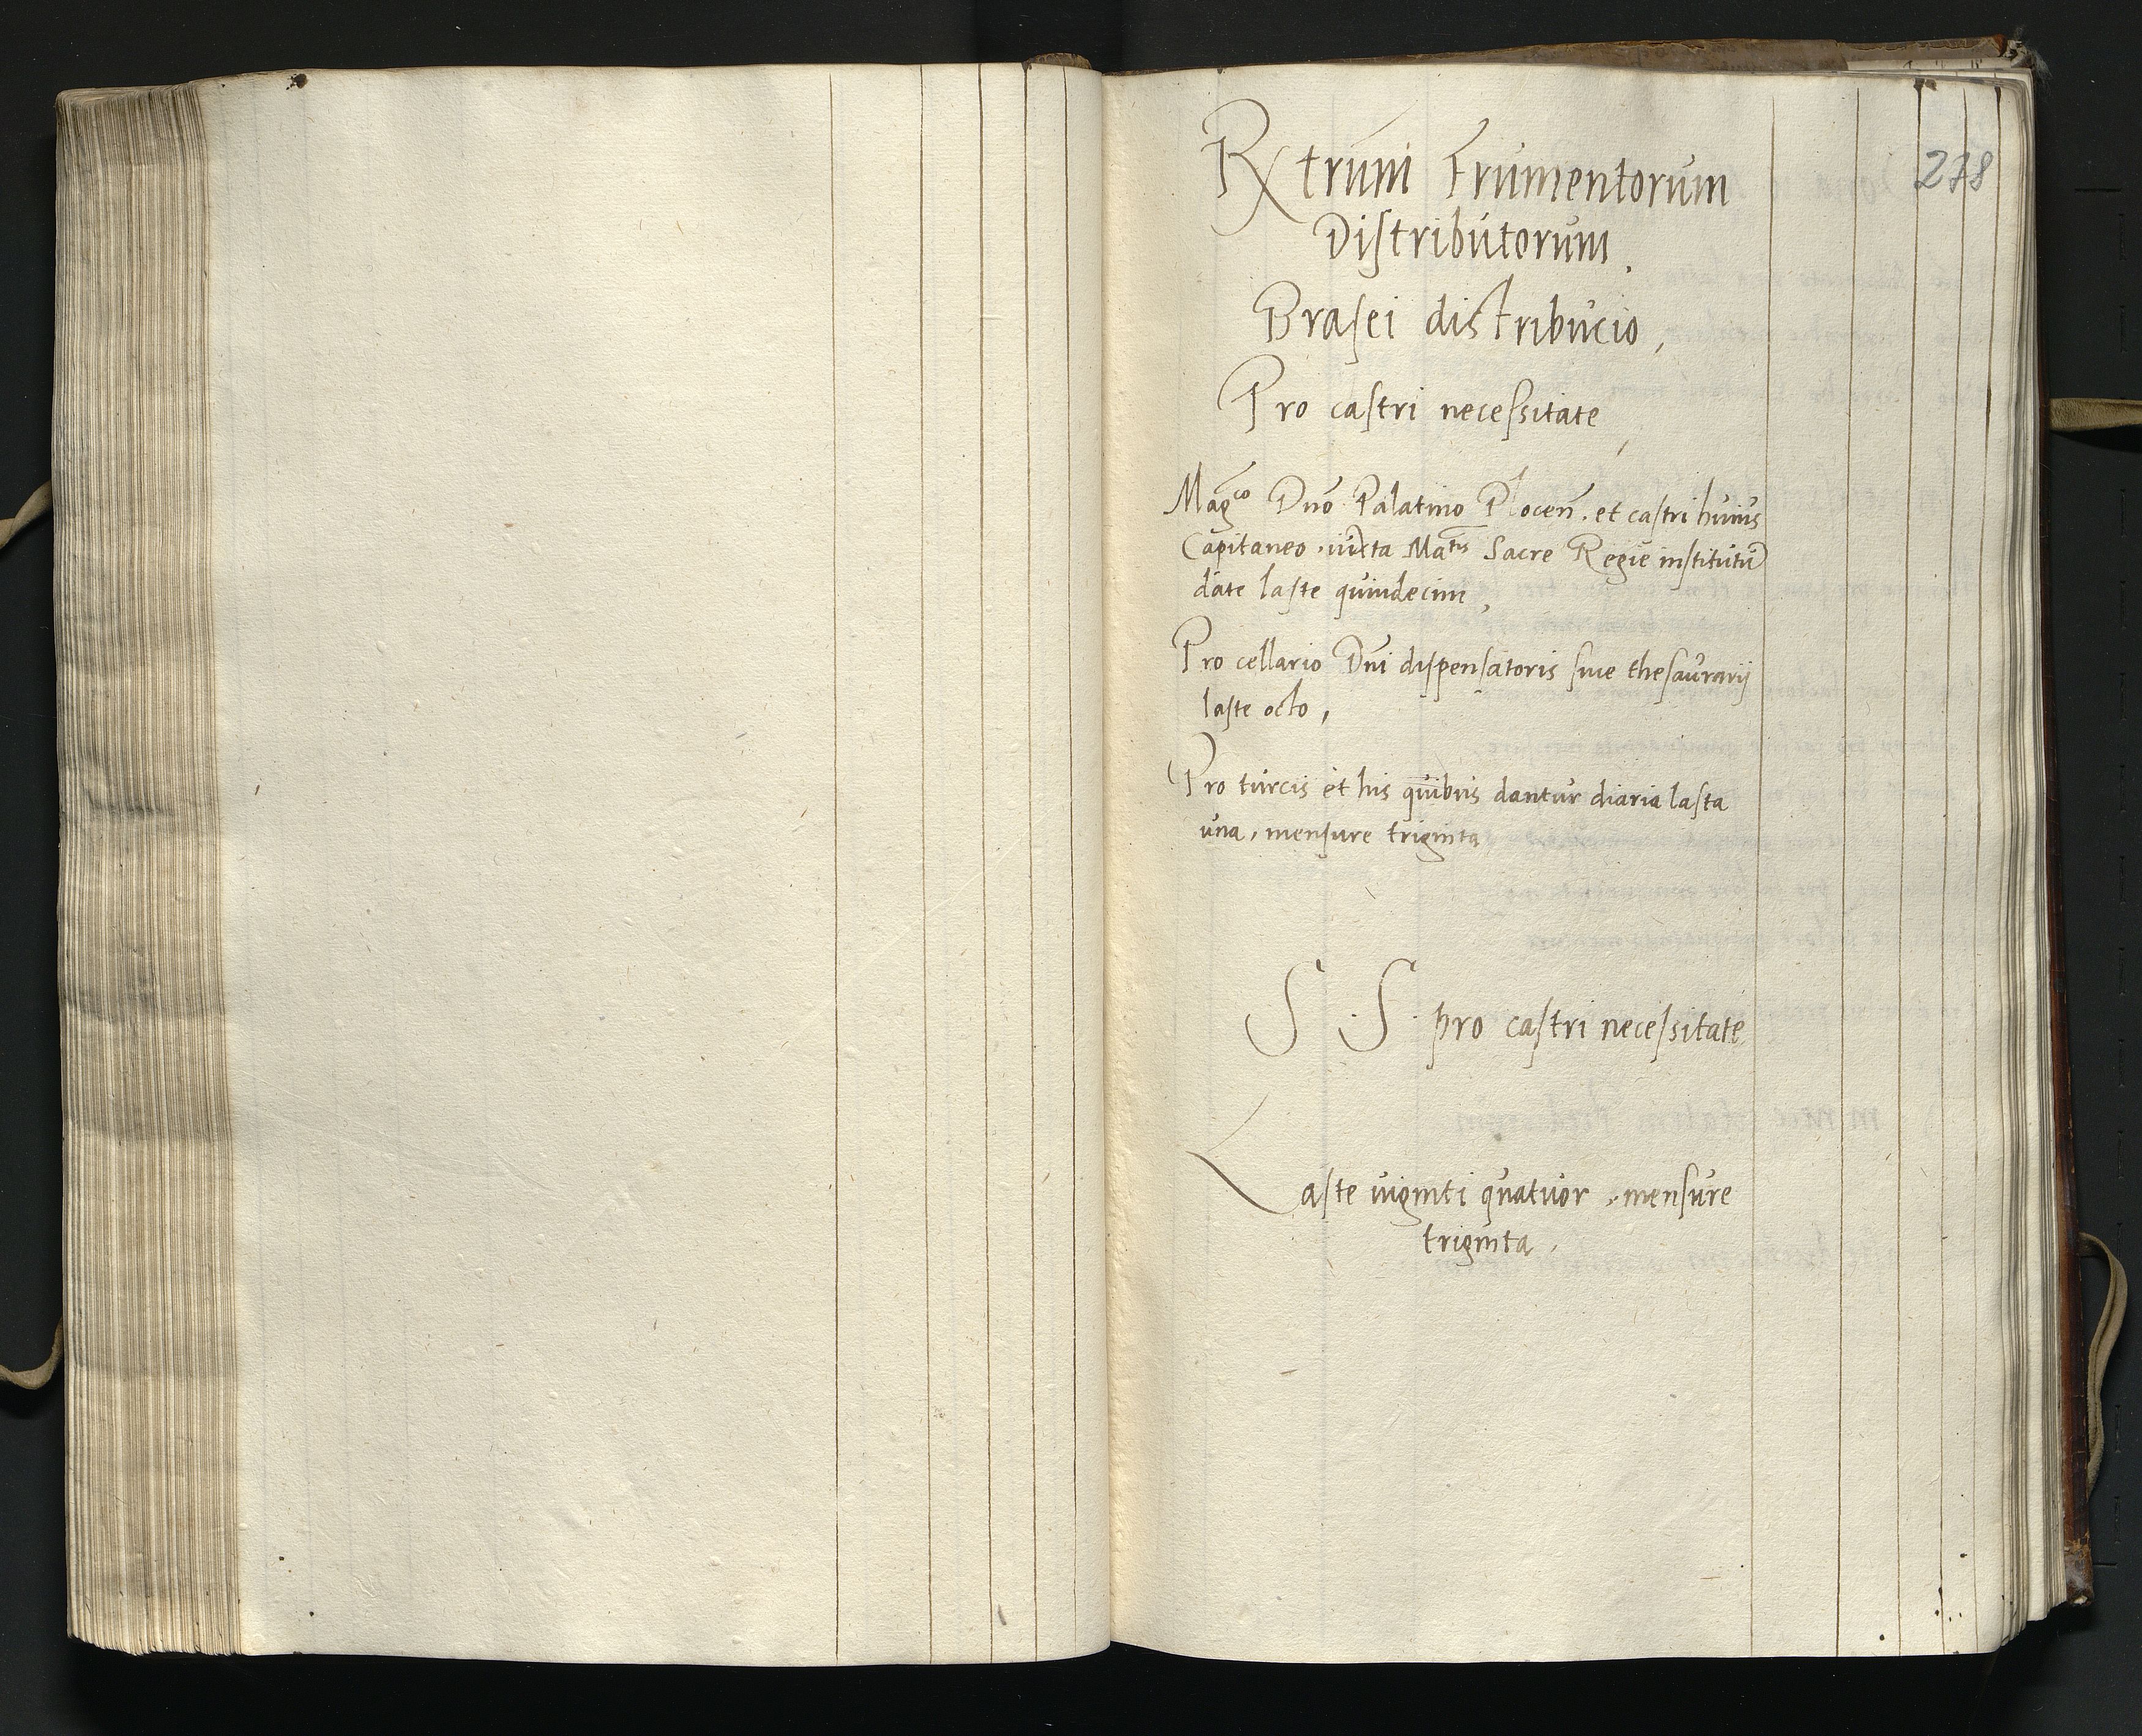 278
Rx̄trum Frumentorum
Distributorum,
Brasei distribucio,
Pro castri necessitate,
Magco Dno Palatino Plocen̄. et castri huius
Capitaneo. iuxta Matis Sacre Regie institutū
date laste quindecim,
Pro cellario Dni dispensatoris siue thesaurarij
laste octo,
Pro turcis et his quibus dantur diaria lasta
una, mensure triginta
S. S. pro castri necessitate
Laste viginti quatuor, mensure
triginta,